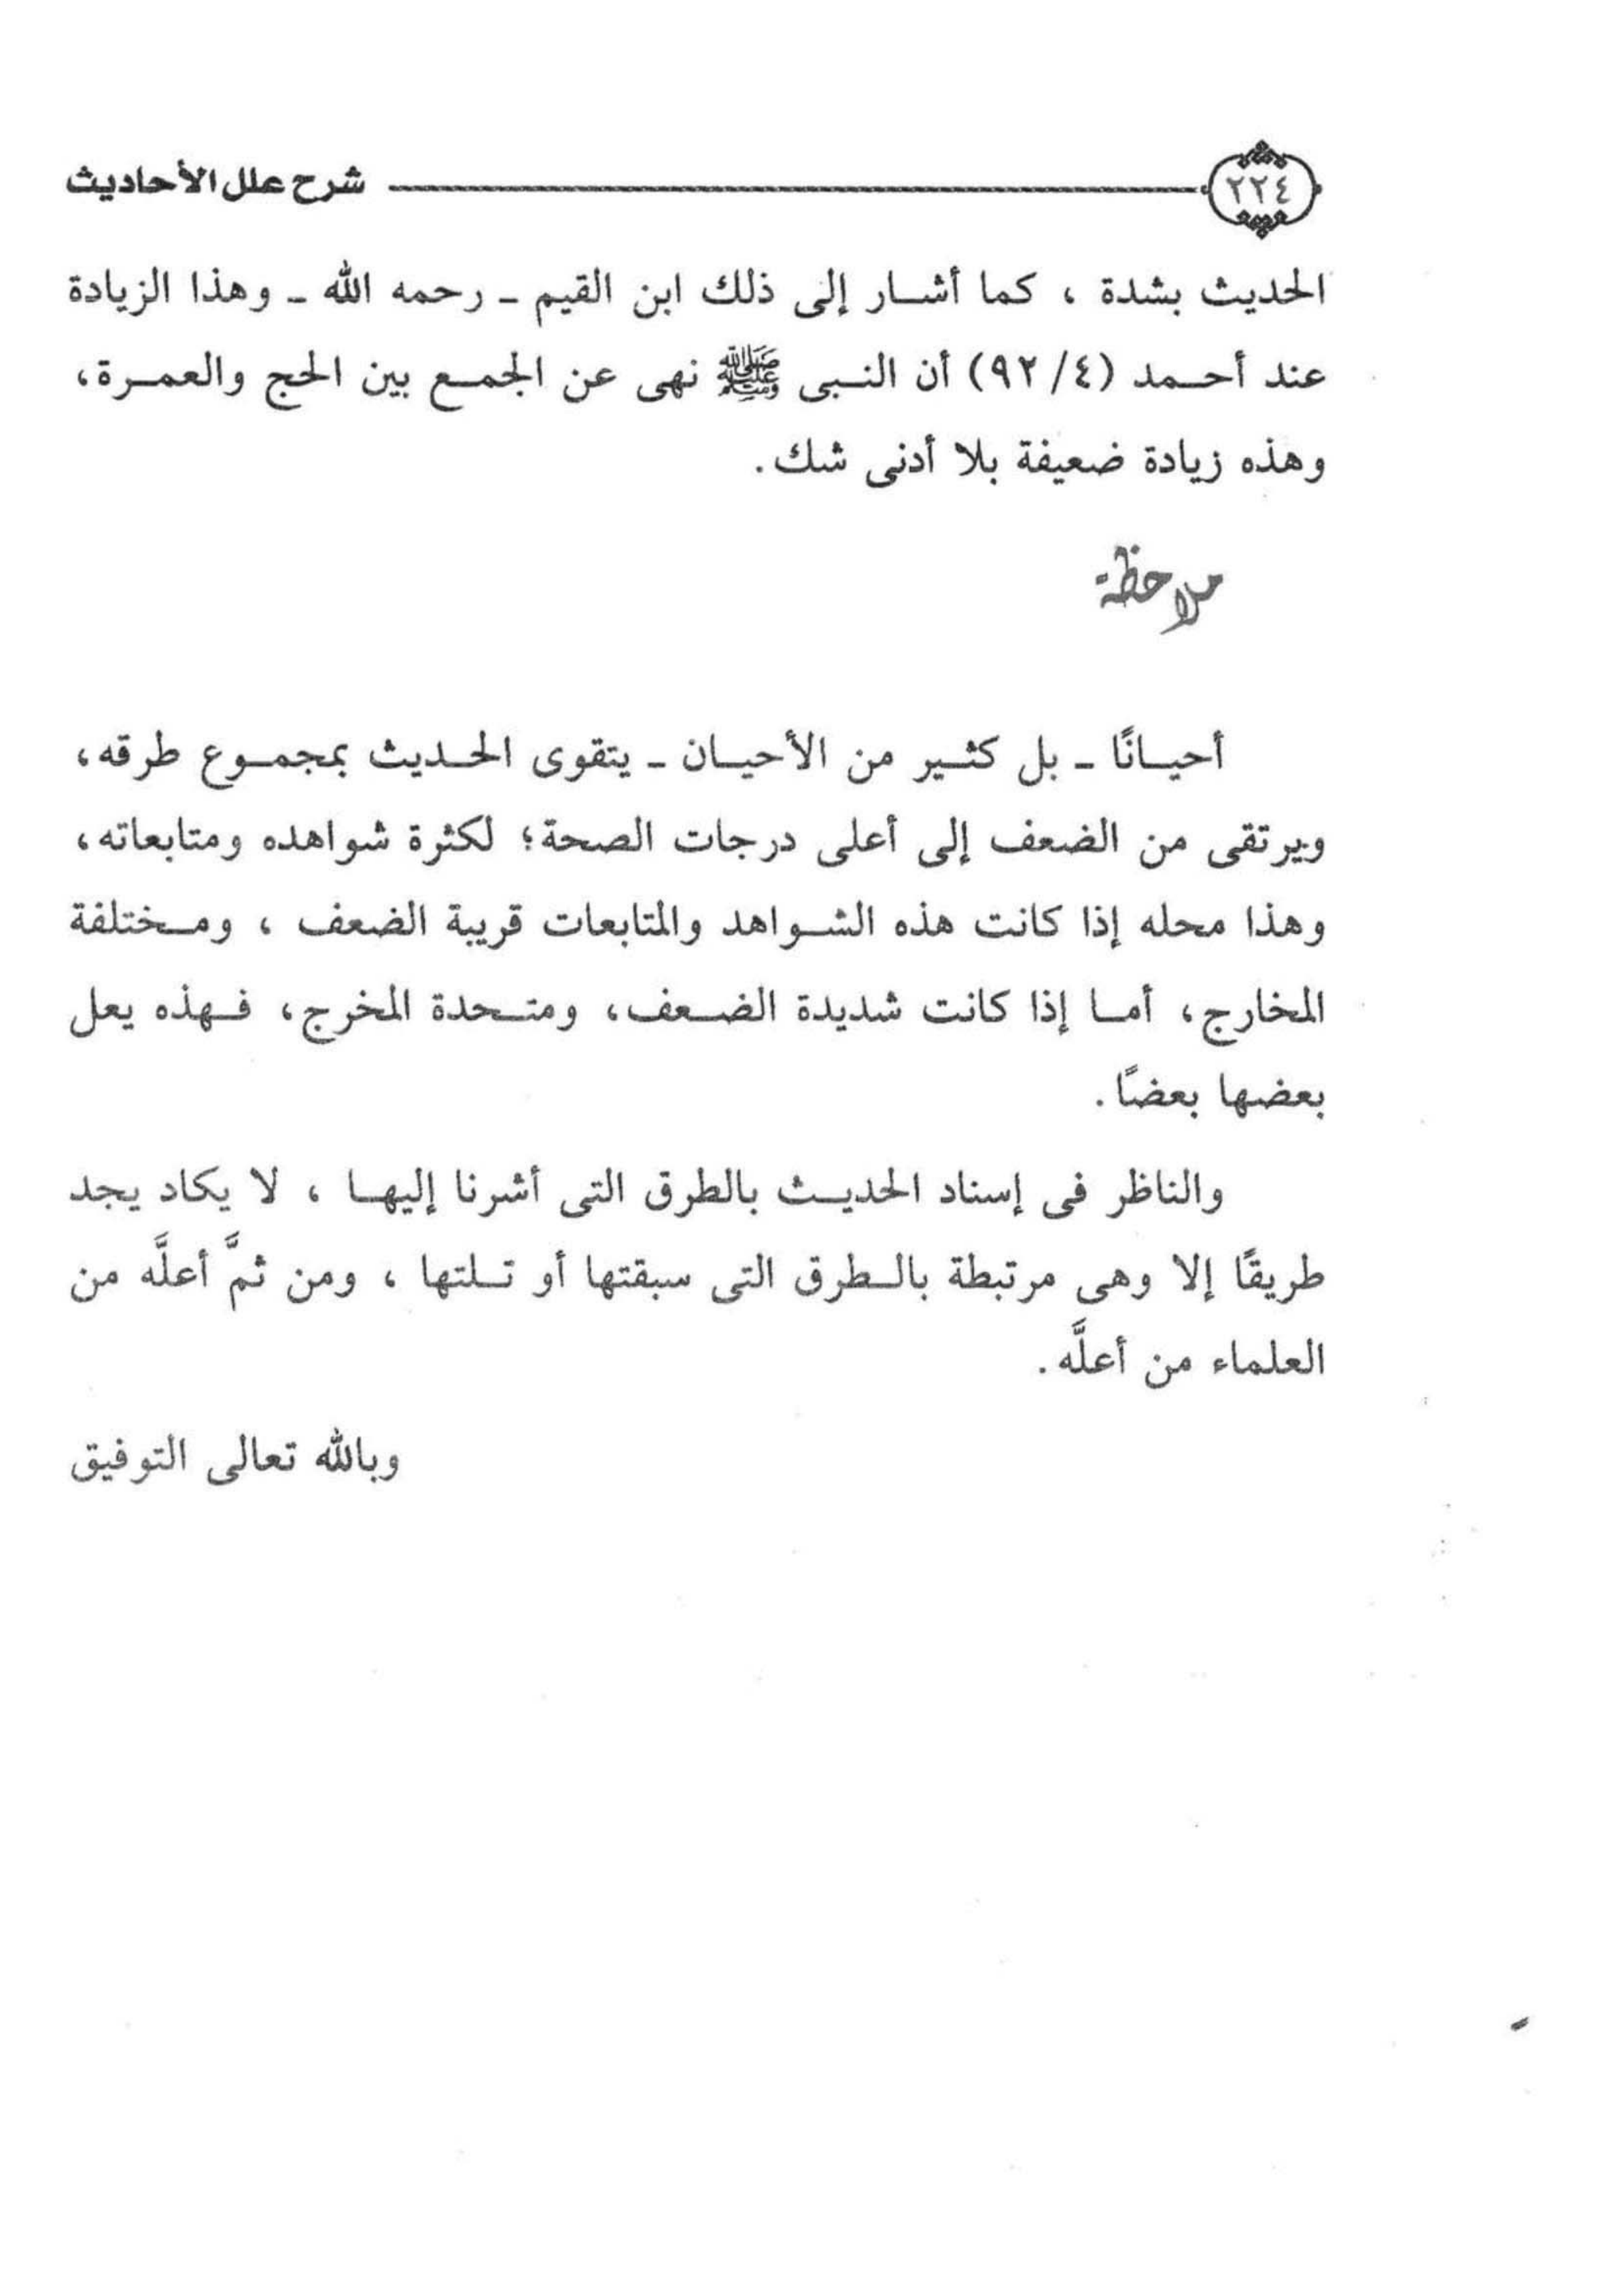 ٢٢٤ شرح علل الأحاديث
الحديث بشدة ، كما أشار إلى ذلك ابن القيم ـ رحمه الله ـ وهذا الزيادة
عند أحمد (٤/ ٩٢) أن النبى ﷺ نهى عن الجمع بين الحج والعمرة،
وهذه زيادة ضعيفة بلا أدنى شك.
ملاحظة
أحيانًا ـ بل كثير من الأحيان ـ يتقوى الحديث بمجموع طرقه،
ويرتقى من الضعف إلى أعلى درجات الصحة؛ لكثرة شواهده ومتابعاته،
وهذا محله إذا كانت هذه الشواهد والمتابعات قريبة الضعف ، ومختلفة
المخارج، أما إذا كانت شديدة الضعف، ومتحدة المخرج، فهذه يعل
بعضها بعضًا.
والناظر فى إسناد الحديث بالطرق التى أشرنا إليها ، لا يكاد يجد
طريقًا إلا وهى مرتبطة بالطرق التى سبقتها أو تلتها ، ومن ثمَّ أعلَّه من
العلماء من أعلَّه.
وبالله تعالى التوفيق